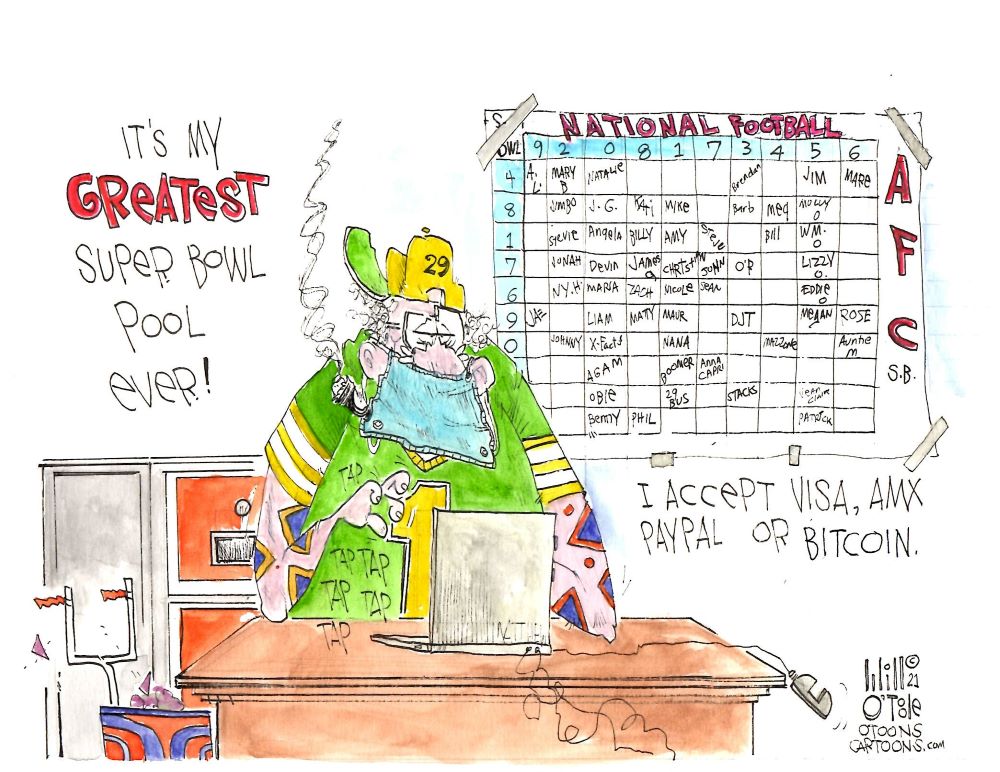 IT'S MY
GREATEST
SUPER BOWL
POOL
EVER!
NATIONAL FOOTBALL
9 2 0 8 1 7 3 4 5 6
4 A.L. MARY B NATALIE Brendan JIM MARE
8 JIMBO J.G. MIKE Barb meg MOLLY O
1 Stevie Angela BILLY AMY Steve Bill WM. O
7 JONAH Devin JAMES CHRISTIAN JOHN O'R LIZZY O.
6 N.Y.H MARIA ZACH NICOLE SEAN EDDIE O
9 JAE LIAM MATY MAUR DJT MEGAN ROSE
0 JOHNNY X-Facts NANA MAZZONE Auntie M
AGAM BOOMER ANNA CAPRI
OBIE 29 BUS STACKS
Benny PHIL PATRICK
A
F
C
S.B.
29
1
TAP
TAP TAP
TAP TAP
TAP
I ACCEPT VISA, AMX
PAYPAL OR BITCOIN.
Will ©
21
O'Toole
O'TOONS
CARTOONS.com